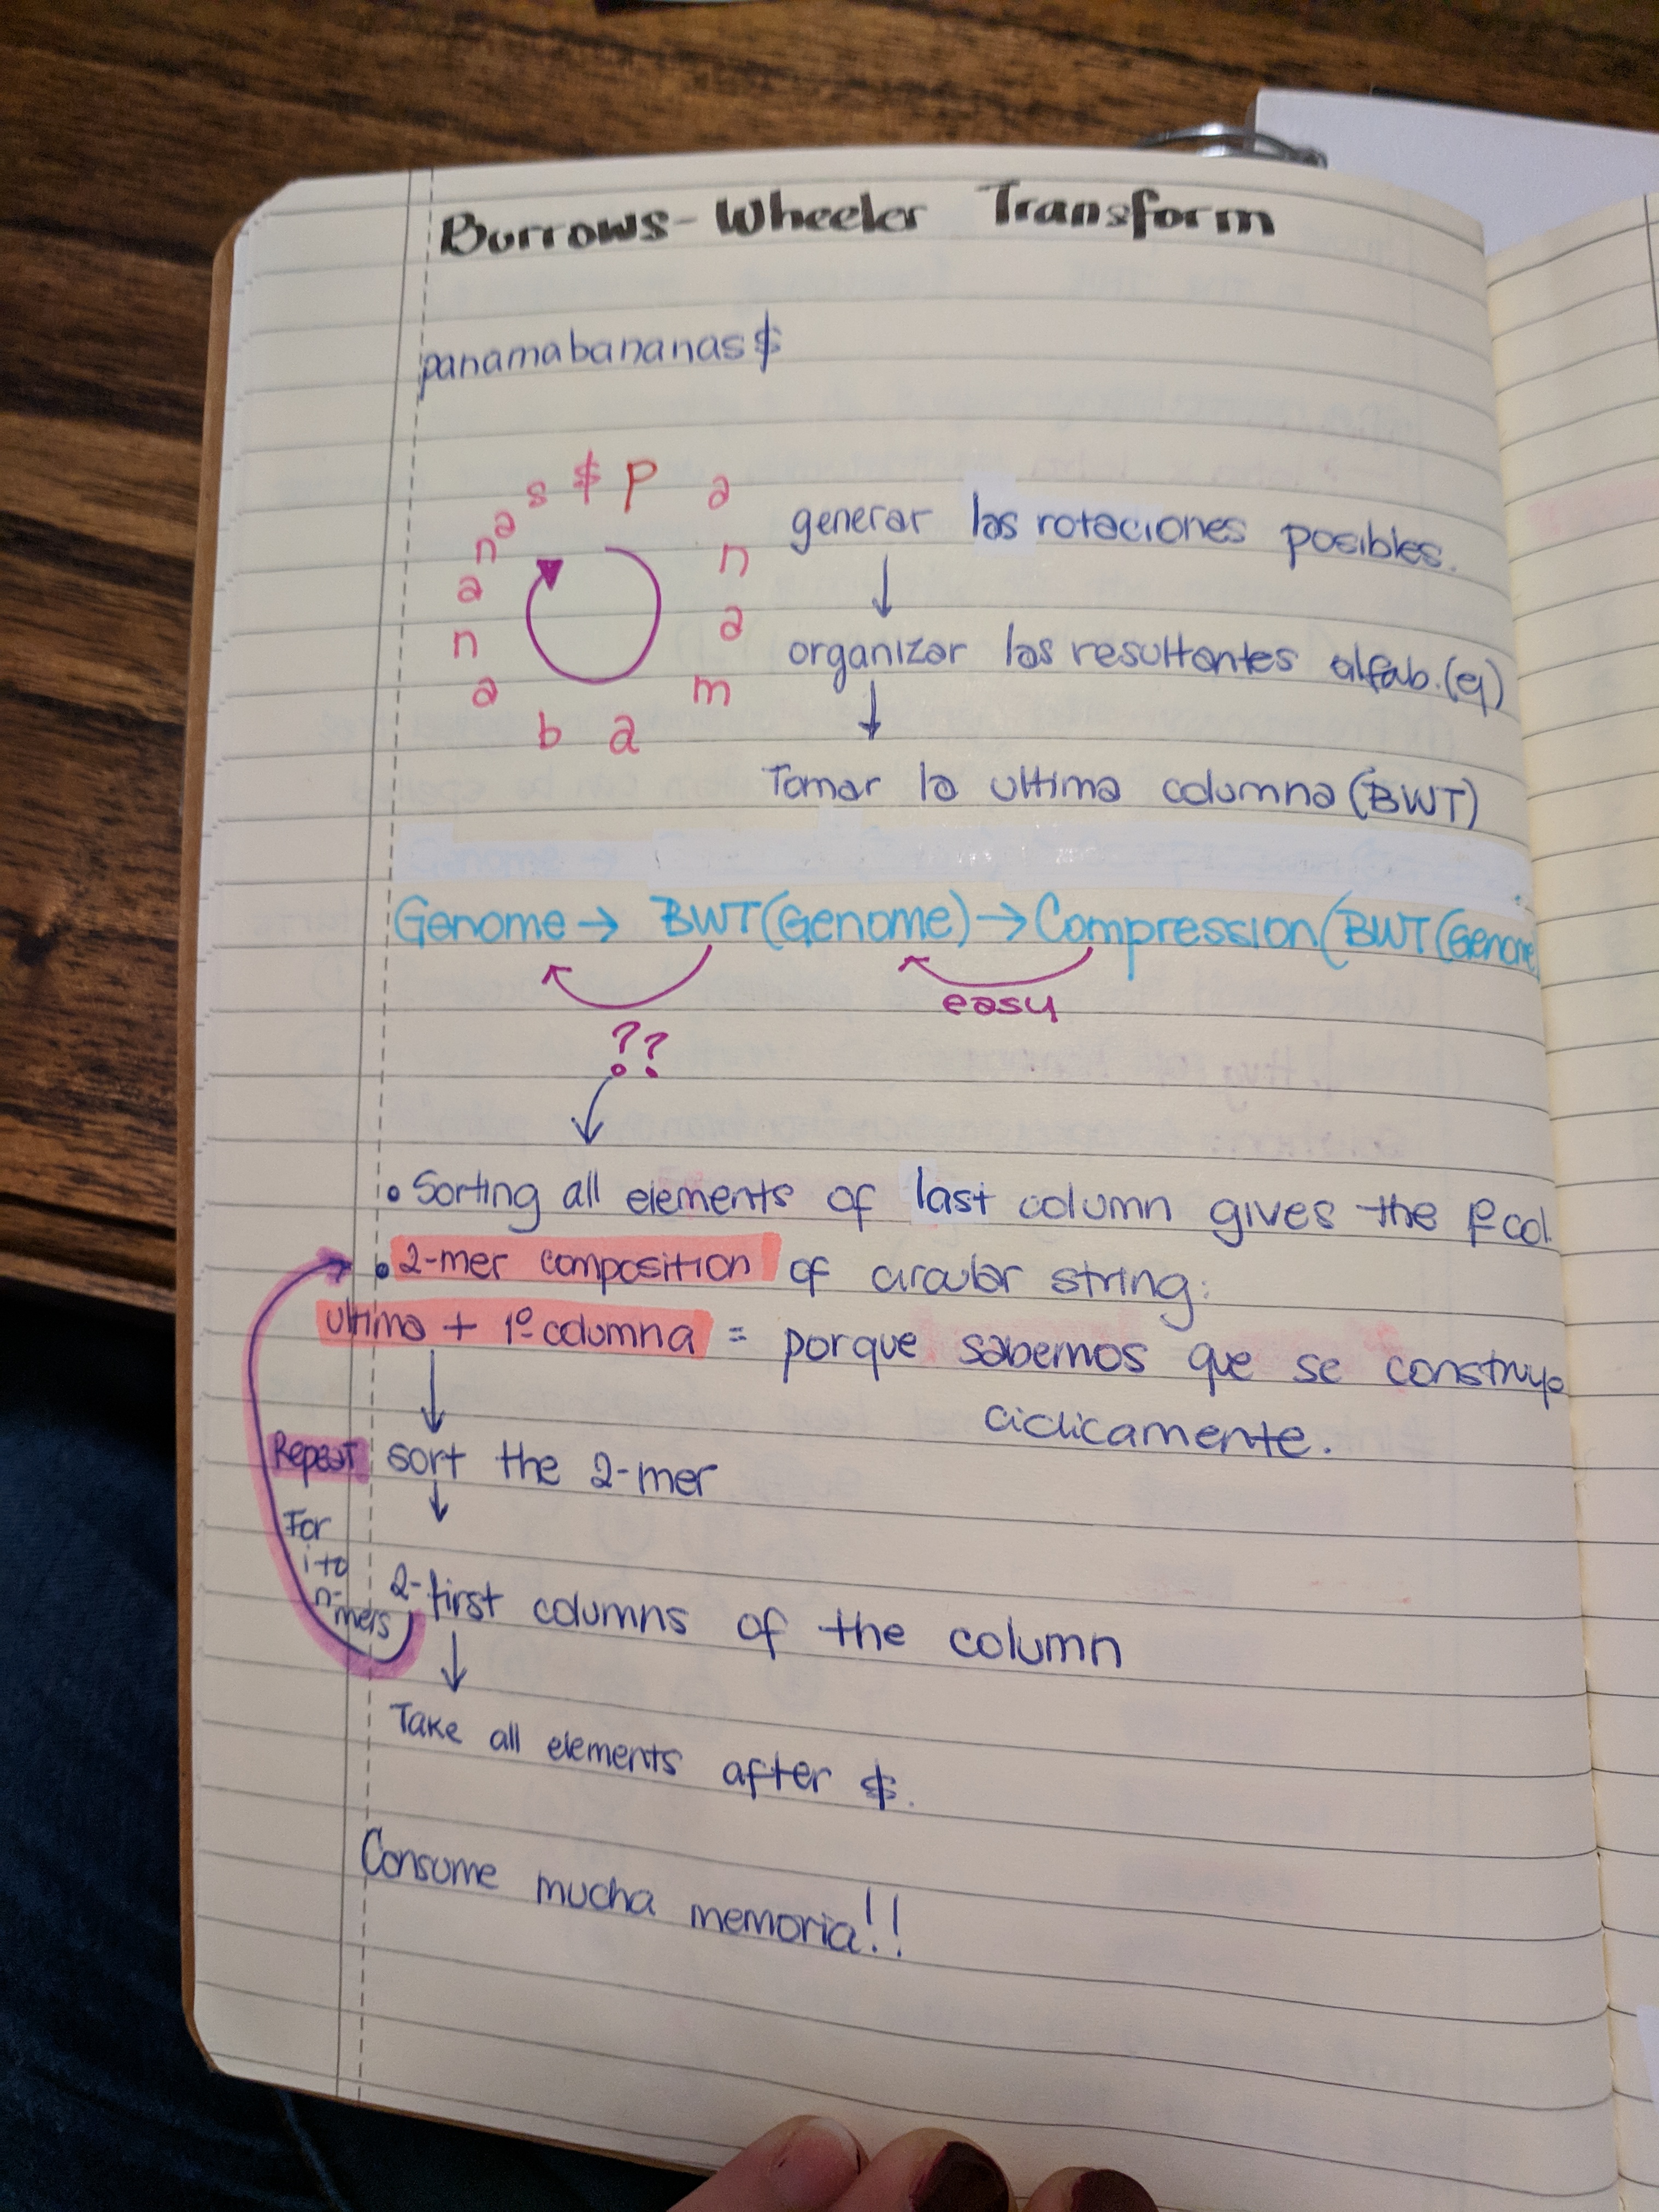 Burrows-Wheeler Transform
panamabananas$
$ p a n a m a b a n a n a s
generar las rotaciones posibles.
↓
organizar las resultantes alfab.(q)
↓
Tomar la ultima columna (BWT)
Genome → BWT(Genome) → Compression(BWT(Genome
easy
??
• Sorting all elements of last column gives the 1º col.
• 2-mer composition of circular string:
ultima + 1º columna = porque sabemos que se construyo
ciclicamente.
Repeat
For
i to
n-
mers
sort the 2-mer
↓
2-first columns of the column
↓
Take all elements after $.
Consume mucha memoria!!